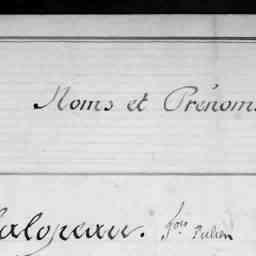 Noms et Prénoms
alopeau. fois Julien